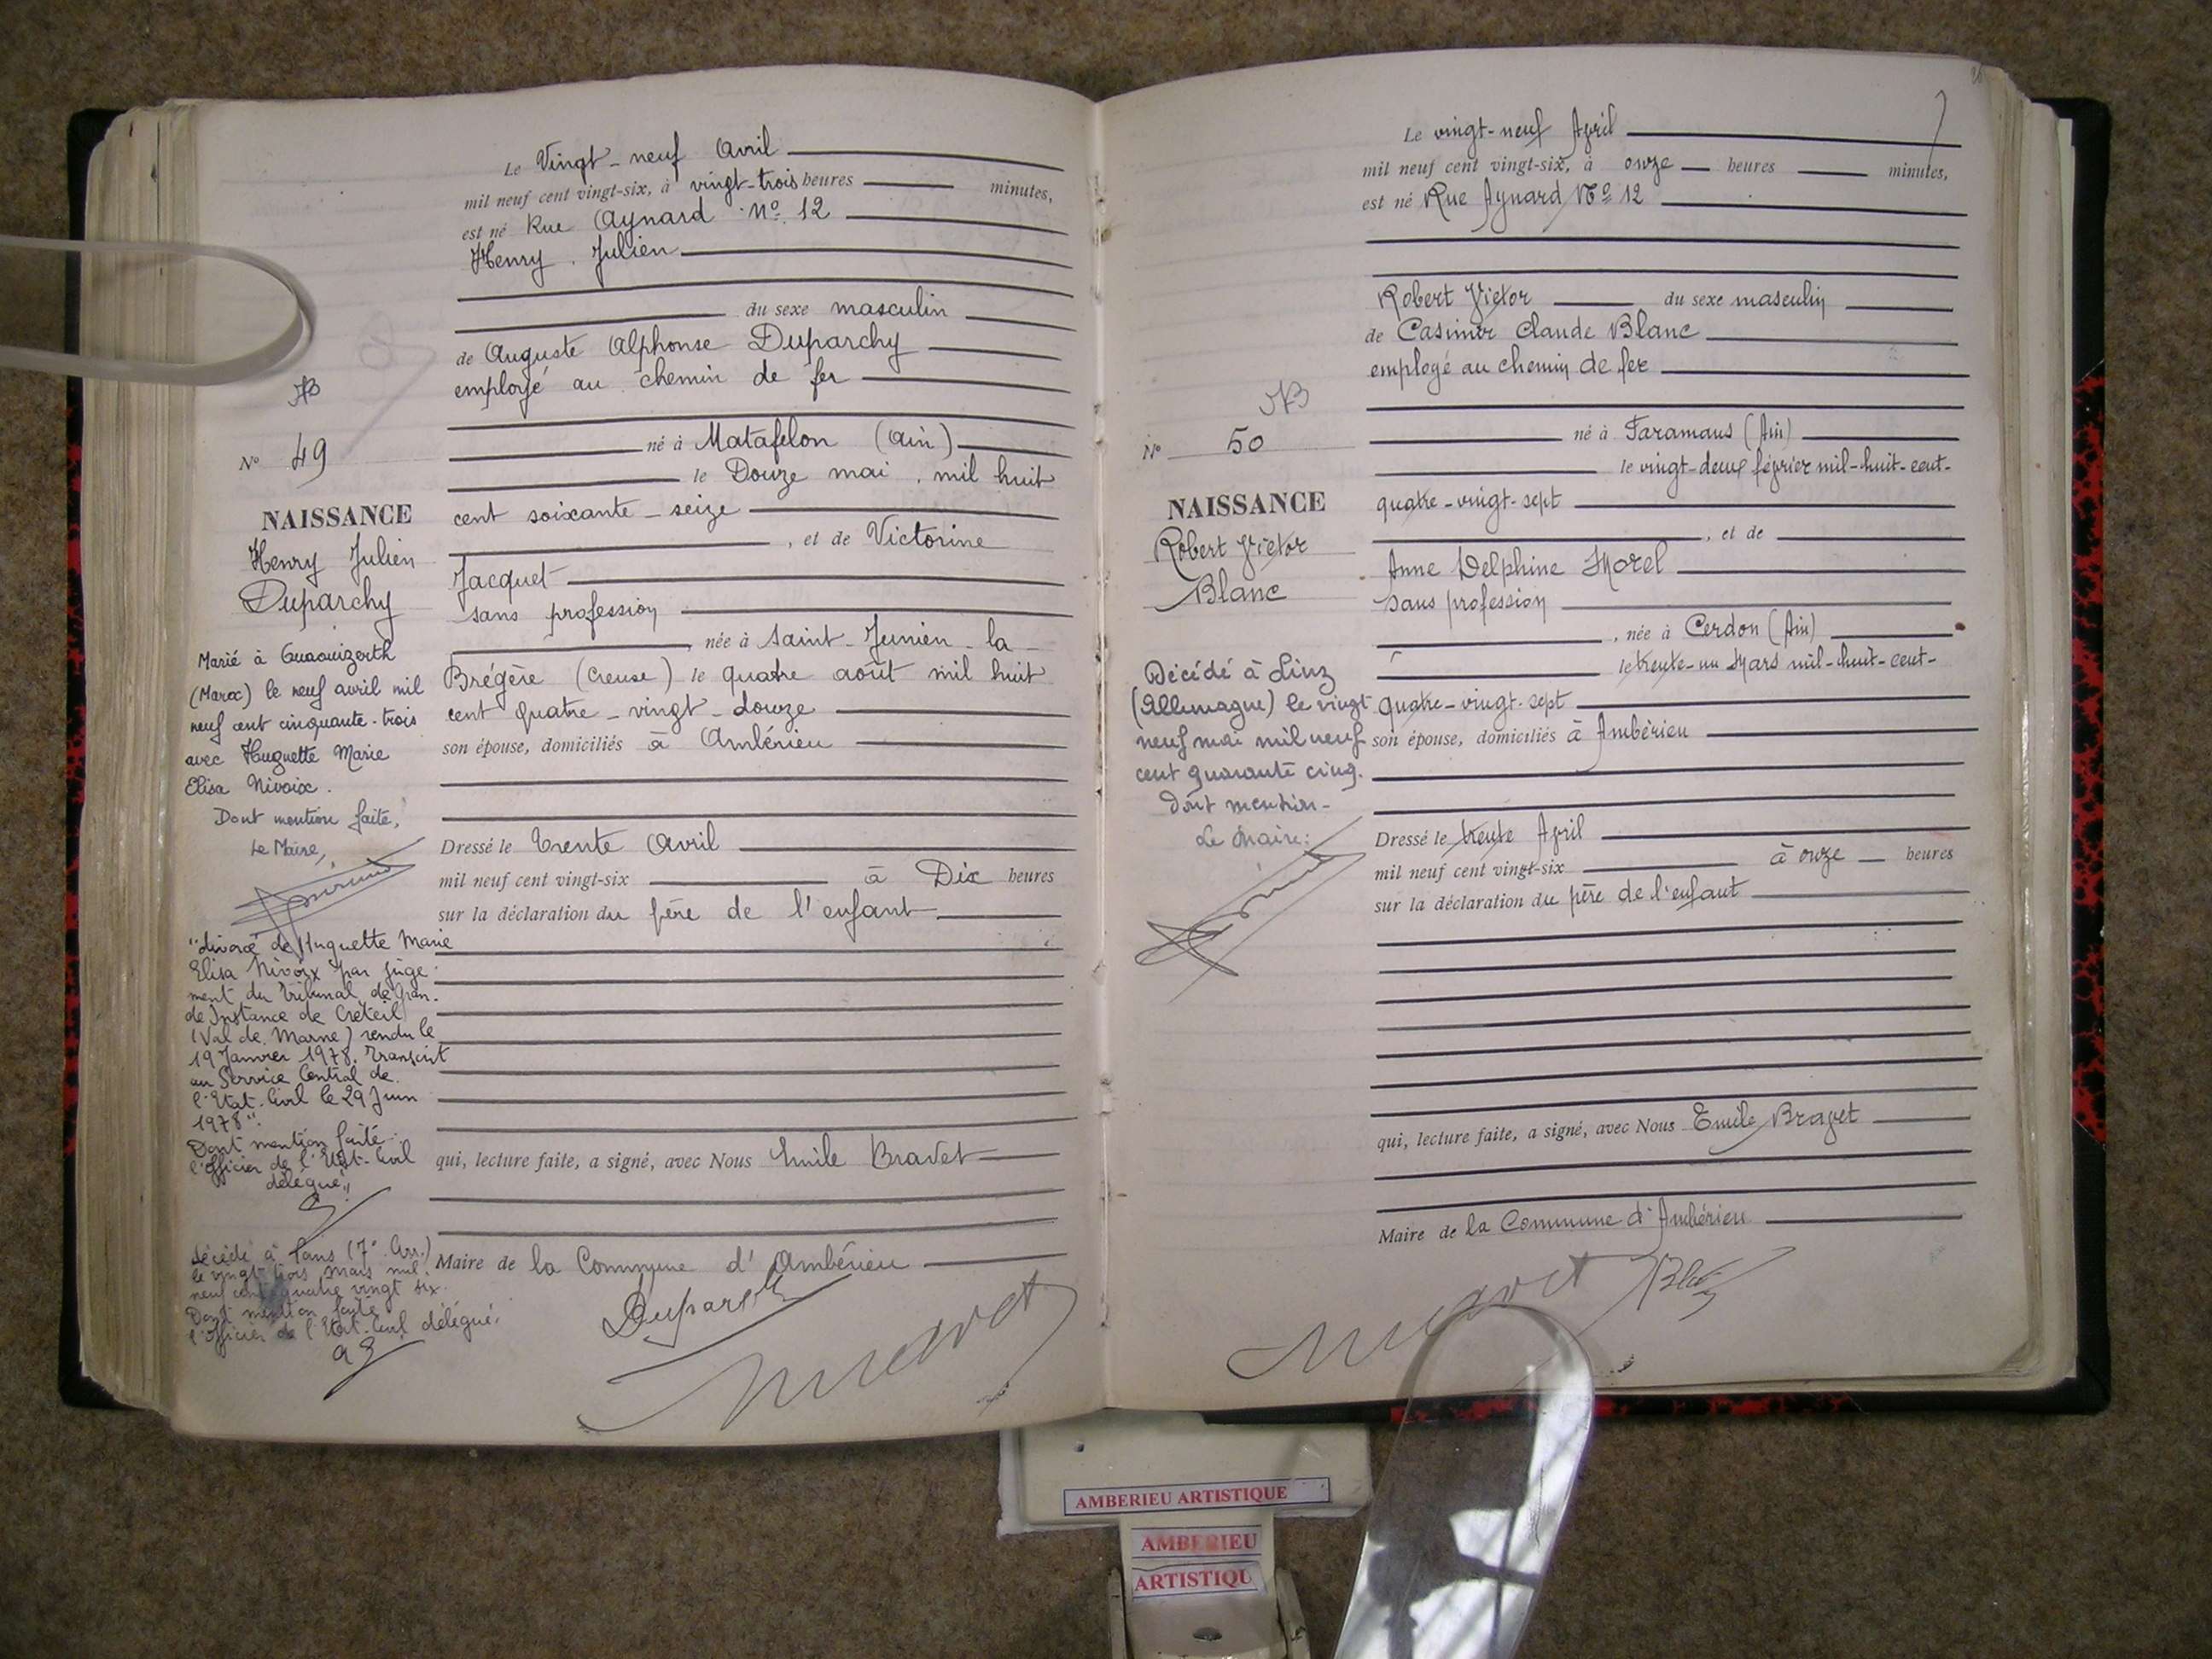 Le Vingt-neuf Avril
mil neuf cent vingt-six, à vingt-trois heures minutes,
est né Rue Aynard No 12
Henry, Julien
du sexe masculin
de Auguste Alphonse Duparchy
employé au chemin de fer
né à Matafelon (Ain)
le Douze mai, mil huit
cent soixante-seize
, et de Victorine
Jacquet
sans profession
, née à Saint-Junien-la-
Brégère (Creuse) le quatre août mil huit
cent quatre-vingt-douze
son épouse, domiciliés à Ambérieu
Dressé le trente Avril
mil neuf cent vingt-six à Dix heures
sur la déclaration du père de l'enfant
qui, lecture faite, a signé, avec Nous Emile Bravet
Maire de la Commune d'Ambérieu
Duparchy
No 49
NAISSANCE
Henry Julien
Duparchy
Marié à
(Maroc) le neuf avril mil
neuf cent cinquante-trois
avec Huguette Marie
Elisa Nivoix.
Dont mention faite,
Le Maire,
"divorcé de Huguette Marie
Elisa Nivoix par juge-
ment du Tribunal de Gran-
de Instance de Créteil
(Val de Marne) rendu le
19 Janvier 1978. Transcrit
au Service Central de
l'Etat-Civil le 29 Juin
1978".
Dont mention faite
l'Officier de l'Etat-Civil
délégué"
Décédé à Paris (7e Arr.)
le vingt-trois mars mil
neuf cent quatre vingt six.
Dont mention faite
l'Officier de l'Etat-Civil délégué.
Le vingt-neuf Avril
mil neuf cent vingt-six, à onze heures minutes,
est né Rue Aynard No 12
Robert Victor du sexe masculin
de Casimir Claude Blanc
employé au chemin de fer
né à Faramans (Ain)
le vingt-deux février mil-huit-cent-
quatre-vingt-sept
, et de
Anne Delphine Morel
sans profession
, née à Cerdon (Ain)
le trente-un Mars mil-huit-cent-
quatre-vingt-sept
son épouse, domiciliés à Ambérieu
Dressé le trente Avril
mil neuf cent vingt-six à onze heures
sur la déclaration du père de l'enfant
qui, lecture faite, a signé, avec Nous Emile Bravet
Maire de la Commune d'Ambérieu
No 50
NAISSANCE
Robert Victor
Blanc
Décédé à Linz
(Allemagne) le vingt
neuf mai mil neuf
cent quarante cinq.
Dont mention-
Le Maire:
AMBERIEU ARTISTIQUE
AMBERIEU
ARTISTIQU